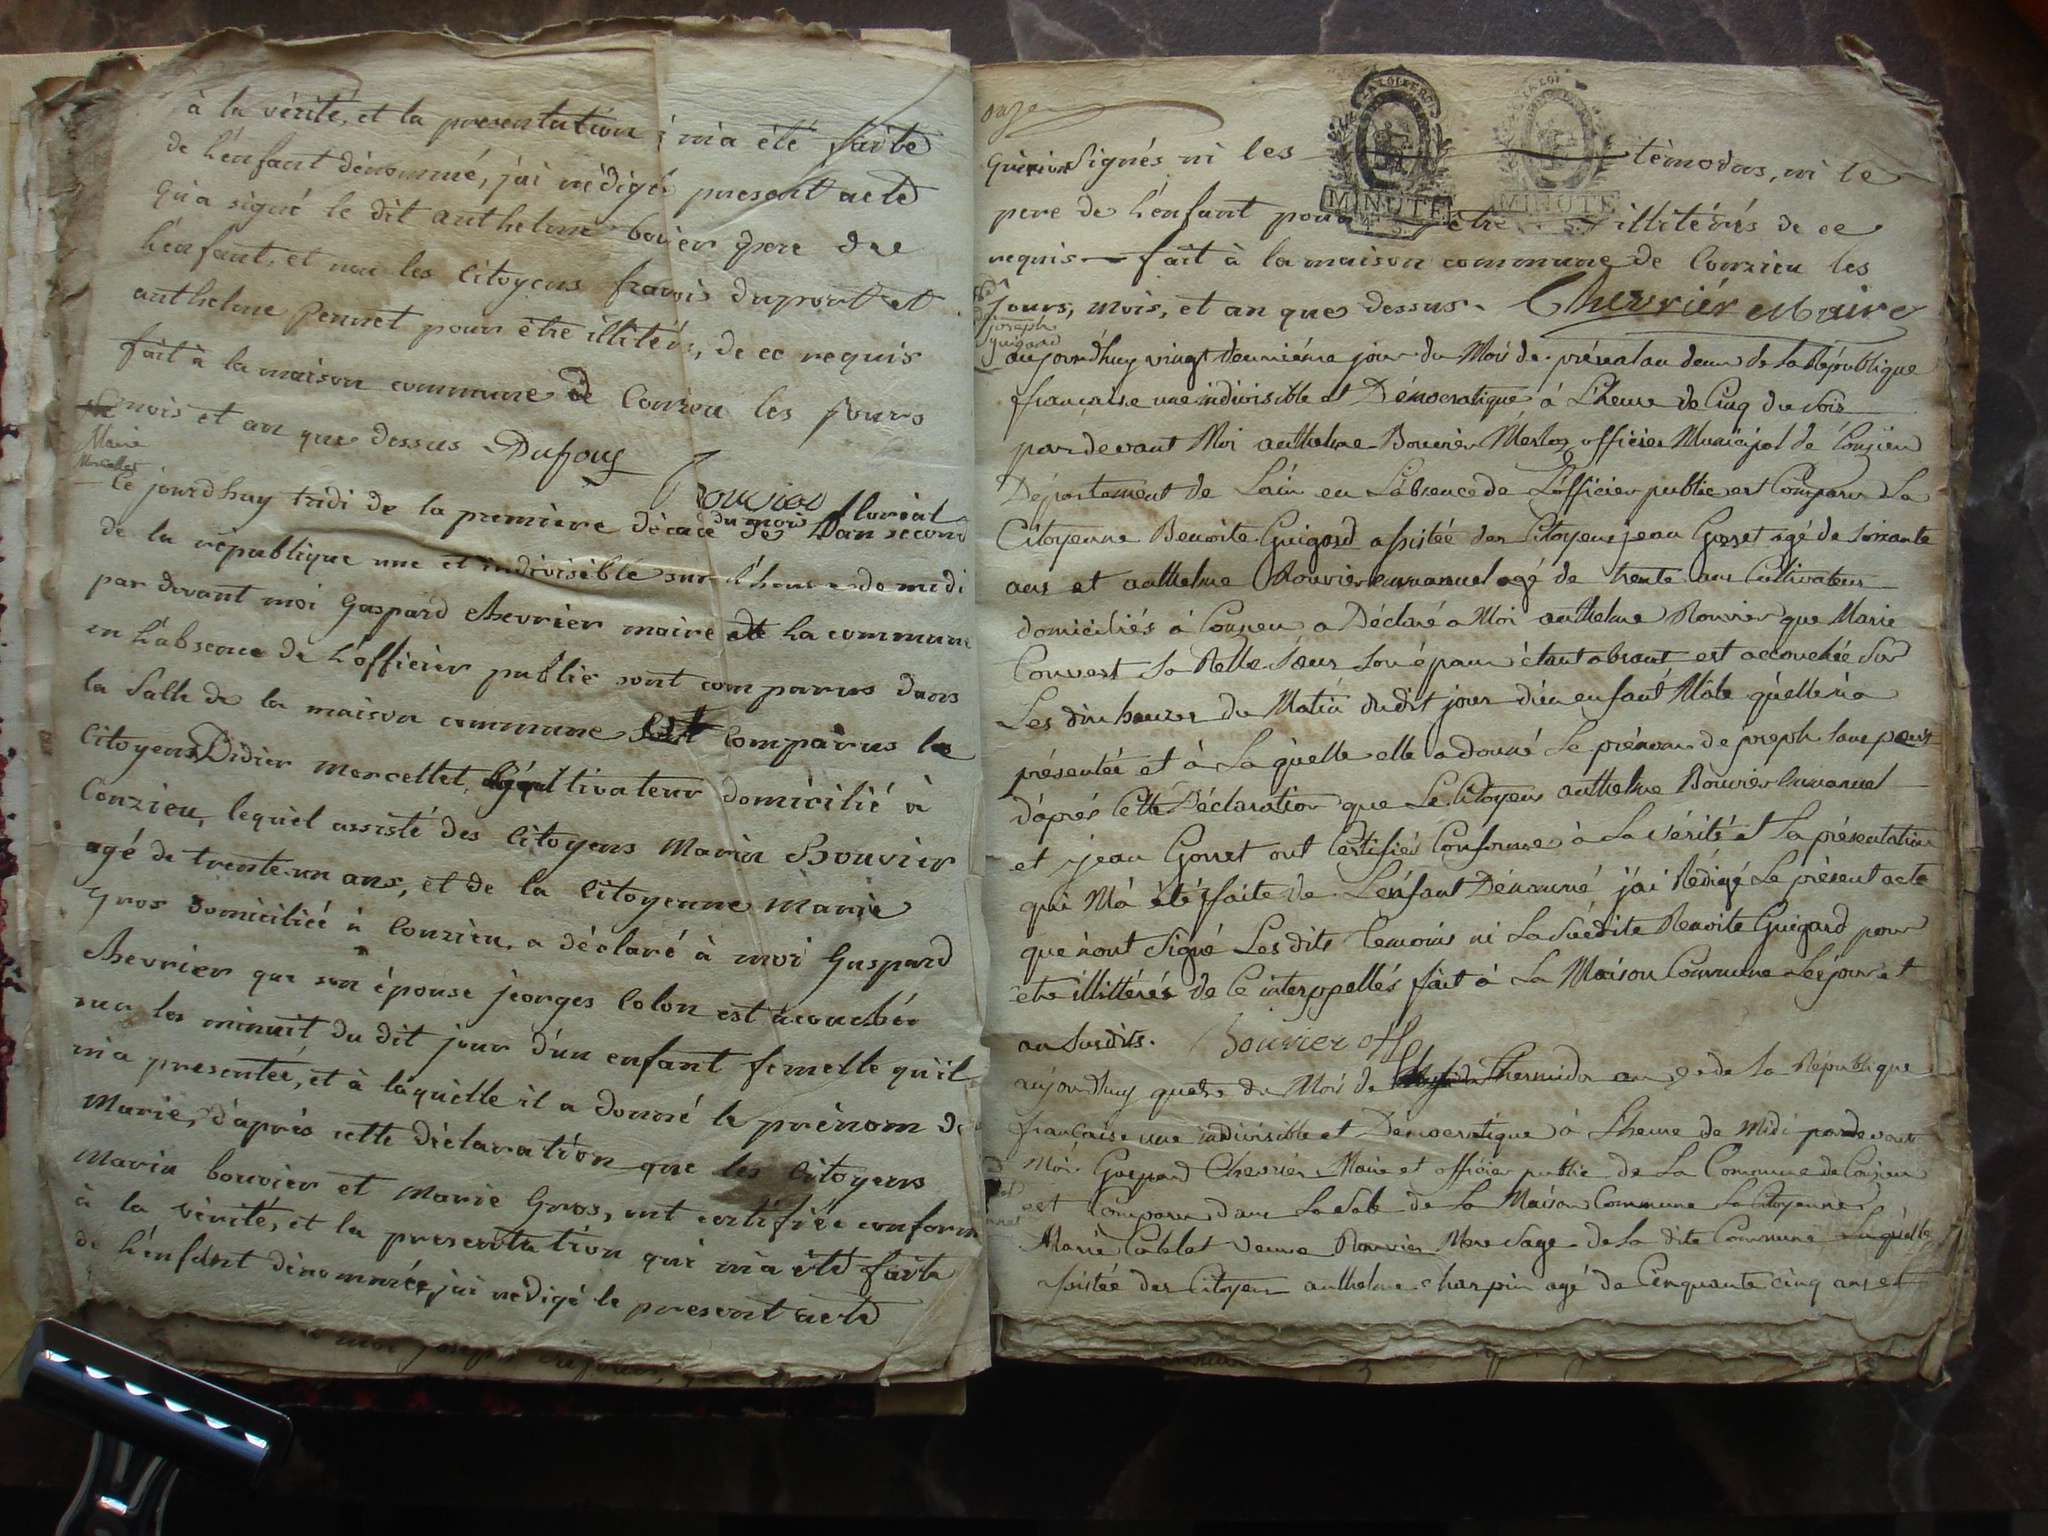 à la vérité, et la presentation m'a été faite
de l'enfant dénommé, j'ai rédigé present acte
qu'a signé le dit anthelme bovier pere de
l'enfant, et non les citoyens franois duport et
anthelme pennet pour être illitér, de ce requis
fait à la maison commune de Conzieu les jours
mois et an que dessus Dufour
Bouvier
Marie
Mercellet
Ce jourdhuy tridi de la première décade du mois floréal de l'an second
de la république une et indivisible sur l'heure de midi
par devant moi Gaspard chevrier maire de la commune
en l'absence de l'officier public sont comparus dans
la Salle de la maison commune comparus le
Citoyens Didier Mercellet, cultivateur domicilié à
Conzieu, lequel assisté des Citoyens Marin Bouvier
agé de trente-un ans, et de la Citoyenne Marie
gros domiciliée à Conzieu, a déclaré à moi Gaspard
Chevrier que son épouse jeorges Colon est acouchée
sur les minuit du dit jour d'un enfant femelle qu'il
m'a presentée, et à laquelle il a donné le prénom de
Marie, d'après cette déclaration que les Citoyens
Marin bouvier et Marie Gros, ont certifiée conform
à la vérité, et la presentation qui m'a été faite
de l'enfant dénommée, j'ai rédigé le present acte
onze
Signés ni les témoins, ni le
pere de l'enfant pour être illitérés de ce
requis fait à la maison commune de Conzieu les
jours, mois, et an que dessus. Chevriér Maire
MINUTE
MINUTE
joseph
guigard
aujourdhuy vingt deuxiéme jour du Mois de préreal an deux de La République
française une indivisible et Démocratique à L'heure de Cinq du soir
pardevant Moi anthelme Bouvier Merloz officier Municipal de Conzieu
Département de Lain en L'absence de L'officier public est Comparu La
Citoyenne Benoite Guigard assistée des Citoyens jean Gorret agé de soixante
ans et anthelme Bouvier emmanuel agé de trente ans Cultivateurs
domiciliés à Conzieu a Déclaré a Moi anthelme Bouvier que Marie
Convert Sa Belle Soeur Son épaux étant absant est accouchée Sur
Les dix heures du Matin dudit jour d'un enfant Mâle qu'elle m'a
présentée et à Laquelle elle a donné Le prénom de joseph
d'après Cette Déclaration que Le Citoyens anthelme Bouvier emanuel
et jean Gorret ont Certifiés Conforme à La vérité et La présentation
qui M'a été faite de L'enfant Dénommé j'ai Rédigé Le présent acte
que n'ont Signé Les dits temoins ni La Susdite Benoite Guigard pour
etre illittérés de Ce interppellés fait à La Maison Commune Les jour et
an Susdits. Bouvier off
aujourdhuy quatre du Mois de Thermidor an 2e de La République
française une indivisible et Démocratique à L'heure de Midi pardevant
Moi Gaspard Chevrier Maire et officier public de La Commune de Conzieu
est Comparu dans La Sale de La Maison Commune La Citoyenne
Marie Catelet veuve Bouvier Mere Sage de La dite Commune Laquelle
assistée des Citoyens anthelme charpin agé de Cinquante cinq ans et